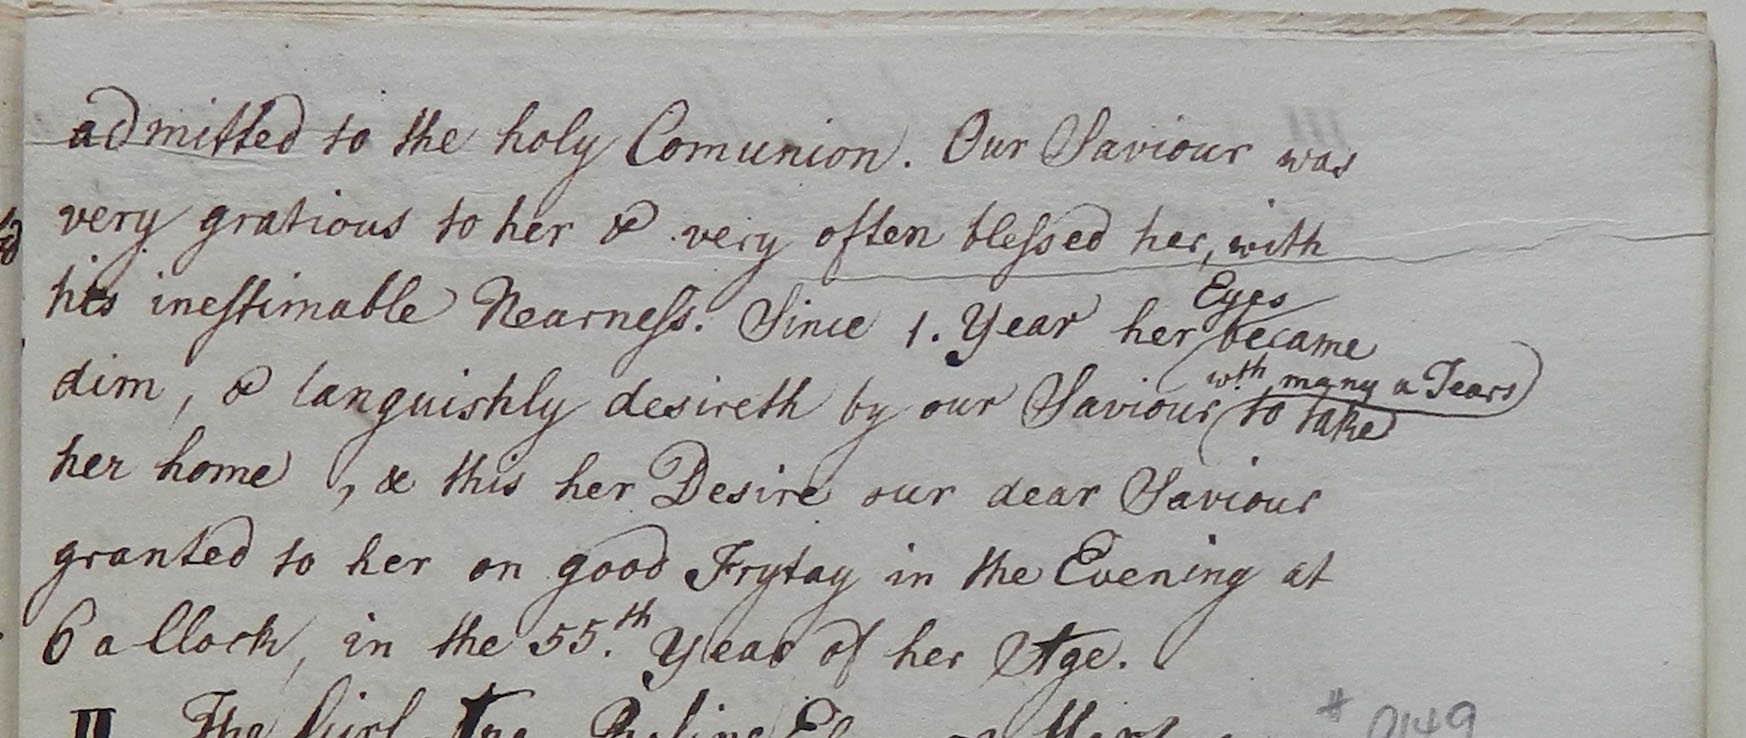 admitted to the holy Comunion. Our Saviour was
very gratious to her & very often blessed her, with
his inestimable Nearness. Since 1. Year her Eyes became
dim, & languishly desireth by our Saviour (wth many a Tears) to take
her home, & this her Desire our dear Saviour
granted to her on good Frytay in the Evening at
6 a Clock, in the 55.th Year of her Age.
II The Girl
# 0149